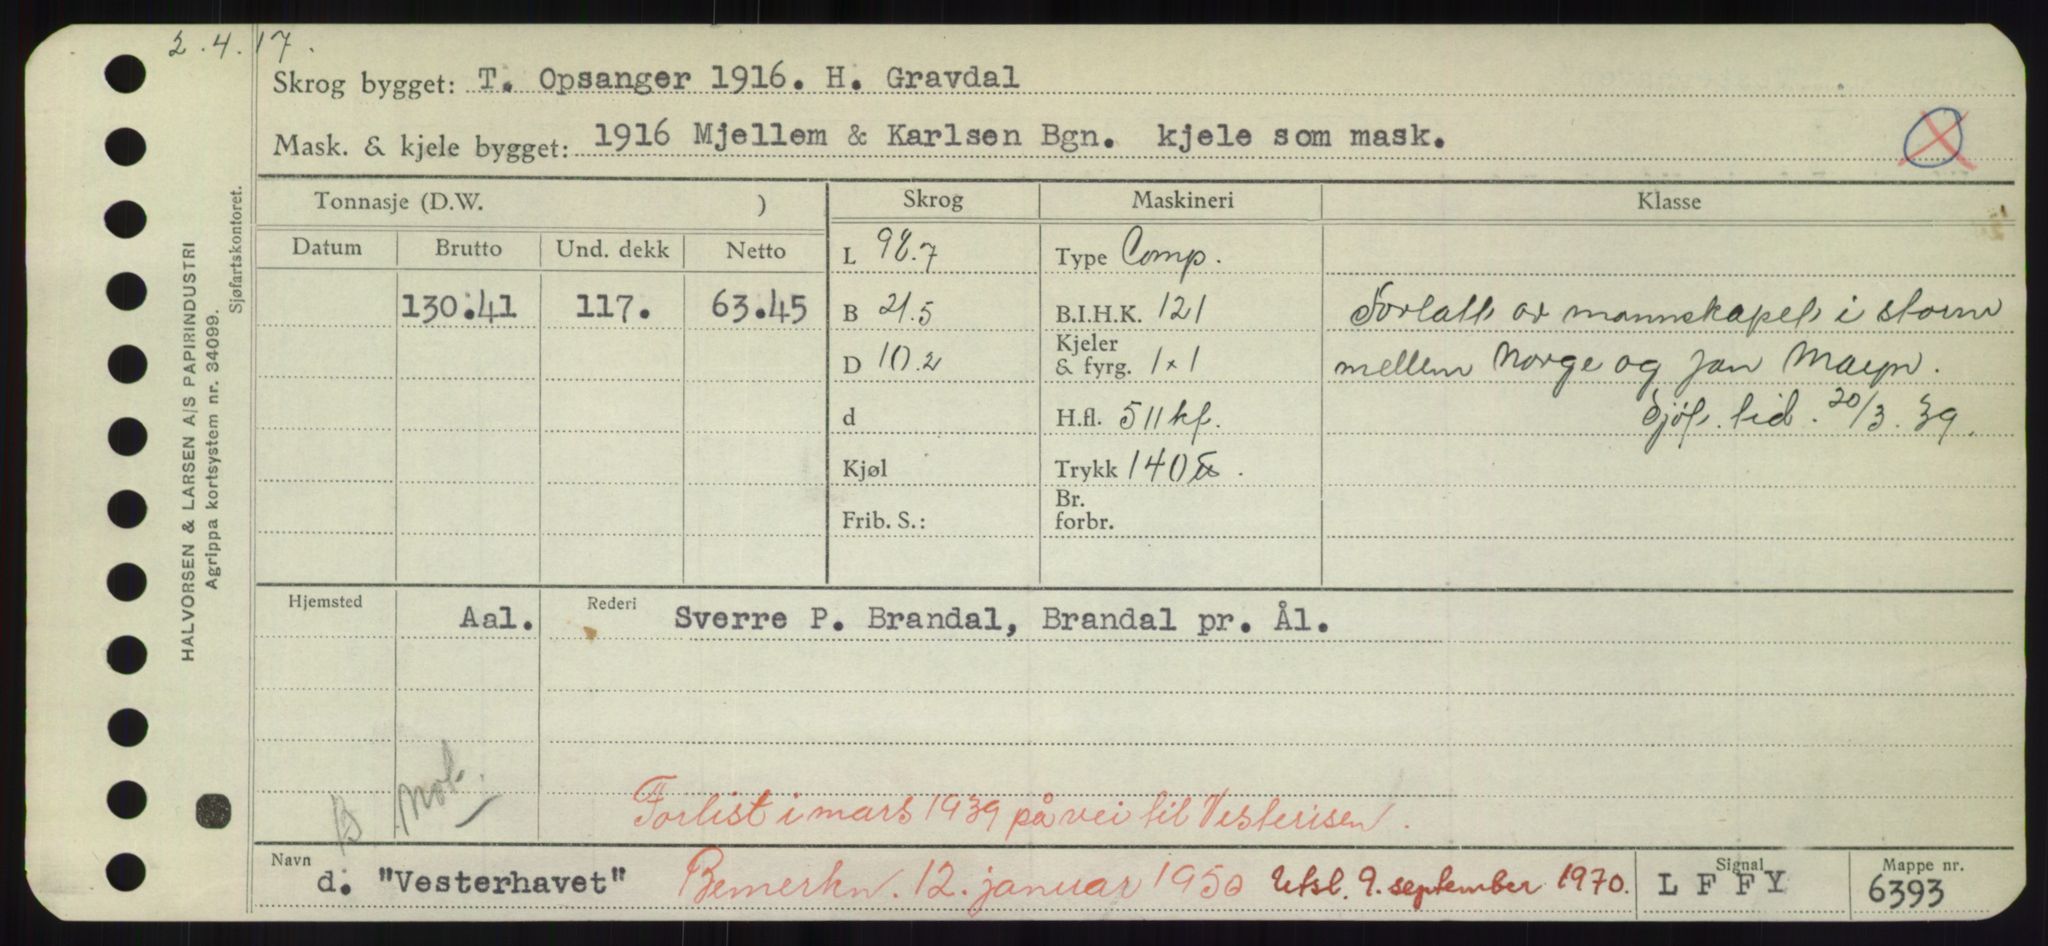 2.4.17.
Skrog bygget: T. Opsanger 1916. H. Gravdal
Mask. & kjele bygget: 1916 Mjellem & Karlsen Bgn. kjele som mask.
Tonnasje (D.W. )
Skrog
Maskineri
Klasse
Datum
Brutto
Und. dekk
Netto
130.41
117.
63.45
L 98.7
B 21.5
D 10.2
d
Kjøl
Frib. S.:
Type Comp.
B.I.H.K. 121
Kjeler
& fyrg. 1x1
H.fl. 511 kf.
Trykk 140
Br.
forbr.
Forlatt av mannskapet i storm
mellem Norge og Jan Mayn.
Sjøf. tid. 20/3.39.
Hjemsted
Aal.
Rederi
Sverre P. Brandal, Brandal pr. Ål.
B Not.
Forlist i mars 1939 på vei til Vesterisen.
Navn
d. "Vesterhavet"
Bemerkn. 12. januar 1950
Utsl. 9. september 1970.
Signal
L F F Y
Mappe nr.
6393
HALVORSEN & LARSEN A/S PAPIRINDUSTRI
Agrippa kortsystem nr. 34099.
Sjøfartskontoret.